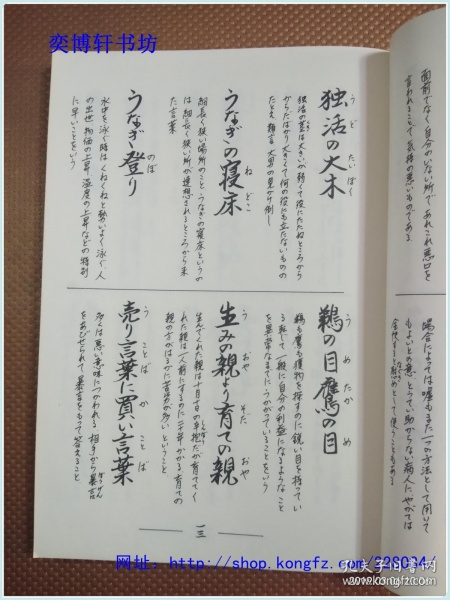 奕博轩书坊
面前でなく自分のいない所であれこれ悪口を
言われることで、気持の悪いものである
独活の大木
うど たいぼく
独活の茎は大きいが弱くて役にたたぬところから
からだばかり大きくて何の役にも立たないものの
たとえ 類言 大男の見かけ倒し
うなぎの寝床
ねどこ
細長く狭い場所のこと、うなぎの寝床というの
は細長く狭い所が連想されるところから来
た言葉
うなぎ登り
のぼ
水中を泳ぐ時はくねくねと勢いよく泳ぐ 人
の出世 物価の上昇 温度の上昇などの特別
に早いことをいう
場合によっては嘘もまた一つの方法として用いて
もよいとの意 とうてい助からない病人に、やがては
全快すると慰めとして使うこともある
鵜の目鷹の目
う め たか め
鵜も鷹も獲物を探すのに鋭い目を持ってい
る 転じて一般に自分の利益になるようなこと
を異常なまでにうかがっていることをいう
生みの親より育ての親
う おや そだ おや
生んでくれた親は十月十日の辛抱だが育ててく
れた親は一人前にするのに二十年かかる 育ての
親の方がはるかに苦労が多いということ
売り言葉に買い言葉
う ことば か ことば
多くは悪い意味につかわれる 相手から暴言
ぼうげん
をあびせられて、暴言をもって答えること
一三
网址: http://shop.kongfz.com/228034/
孔夫子旧书网